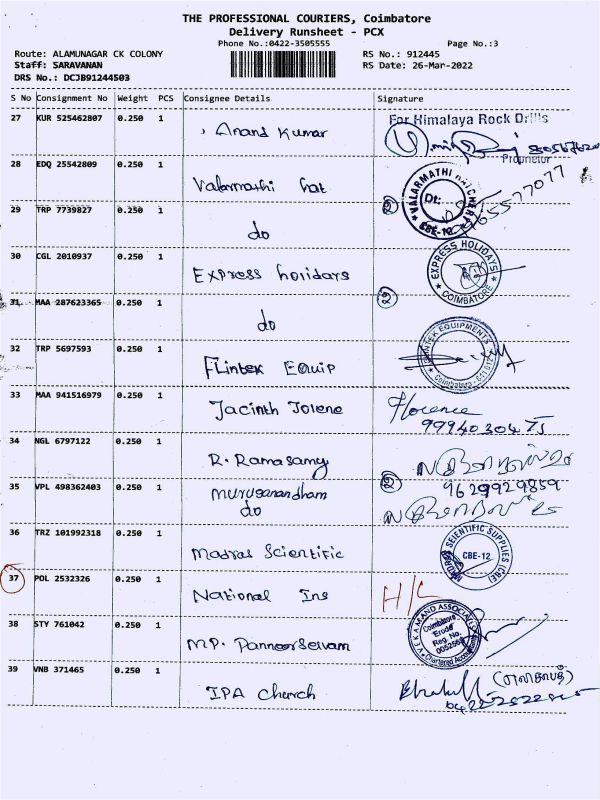 THE PROFESSIONAL COURIERS, Coimbatore
Delivery Runsheet - PCX
Phone No.:0422-3505555
Page No.:3
Route: ALAMUNAGAR CK COLONY
RS No.: 912445
Staff: SARAVANAN
RS Date: 26-Mar-2022
DRS No.: DCJB91244503
S No Consignment No Weight PCS Consignee Details Signature
27 KUR 525462807 0.250 1 Anand Kumar
For Himalaya Rock Drills
Proprietor
28 EDQ 25542809 0.250 1 Valarmathi hat
VALARMATHI HATCHERY
Dt:
CBE-12
29 TRP 7739827 0.250 1 do
30 CGL 2010937 0.250 1 Express holidays
EXPRESS HOLIDAYS
COIMBATORE
31 MAA 287623365 0.250 1 do
32 TRP 5697593 0.250 1 Flintex Equip
33 MAA 941516979 0.250 1 Jacinth Jolene Florence
99940 30475
34 NGL 6797122 0.250 1 R. Ramasamy
35 VPL 498362403 0.250 1 muruganandham 9629929859
do
36 TRZ 101992318 0.250 1 Madras Scientific
MADRAS SCIENTIFIC SUPPLIES (CBE)
CBE-12
37 POL 2532326 0.250 1 National Ins H/C
38 STY 761042 0.250 1 MP. Panneerselvam
Coimbatore
Erode
Reg. No.
Chartered Accountants
39 VNB 371465 0.250 1 IPA church